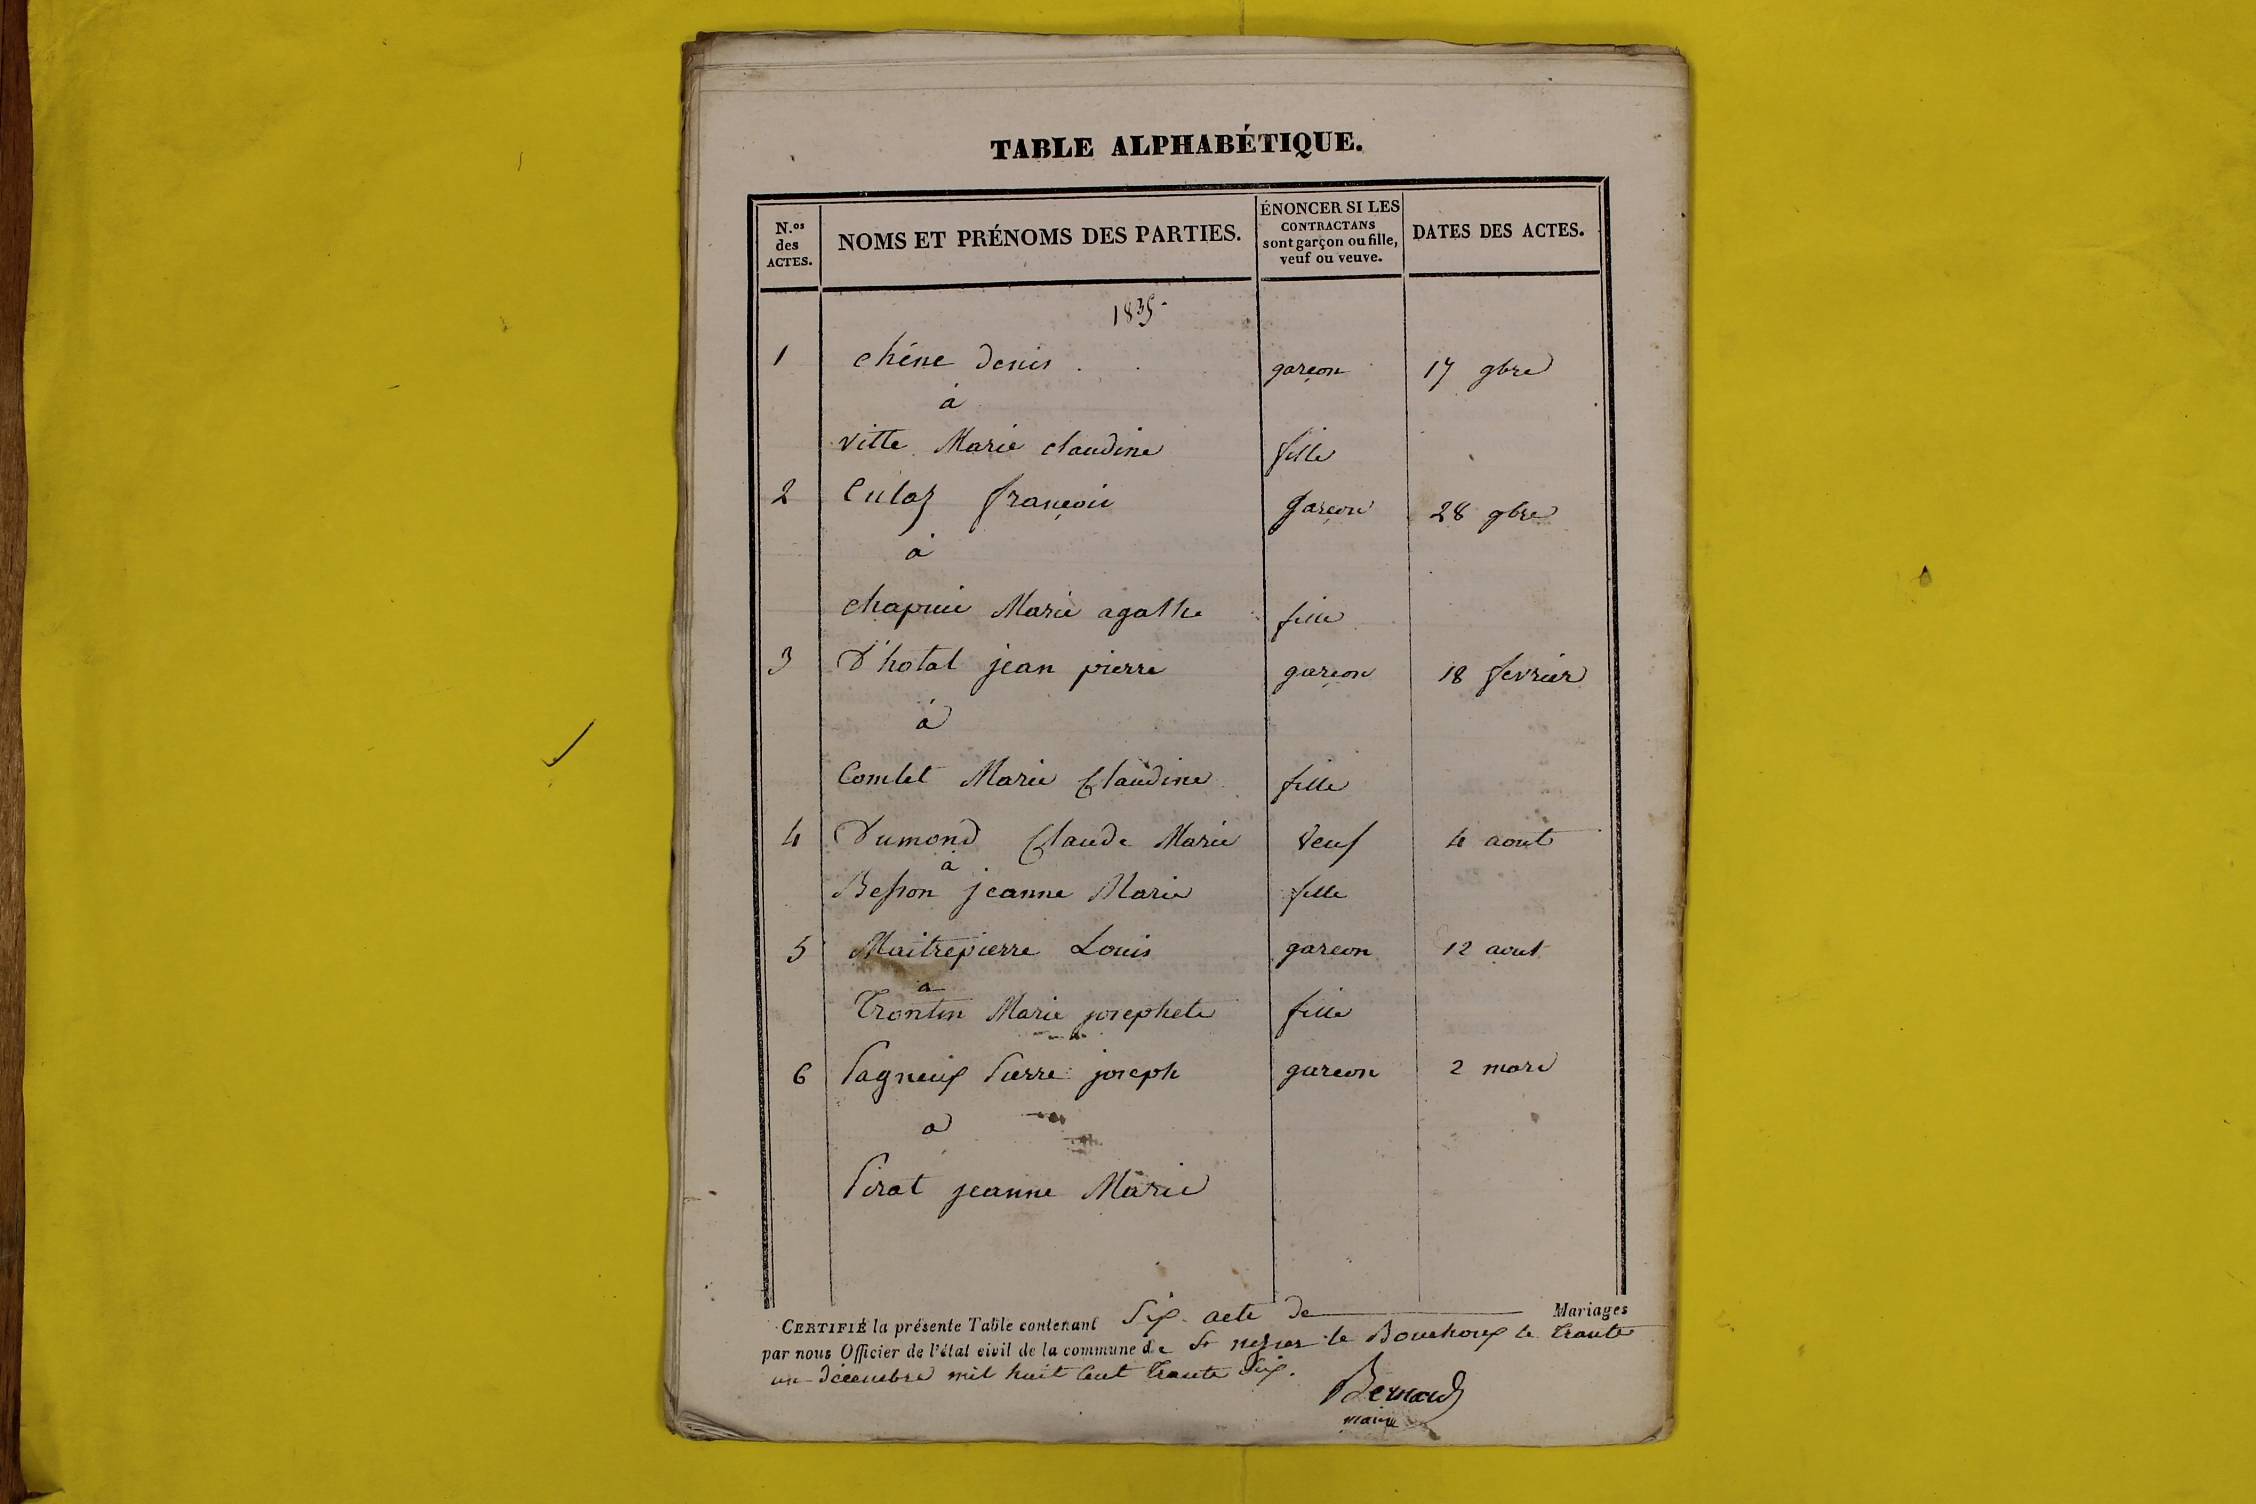 TABLE ALPHABÉTIQUE.
N.os des ACTES.
NOMS ET PRÉNOMS DES PARTIES.
ÉNONCER SI LES CONTRACTANS sont garçon ou fille, veuf ou veuve.
DATES DES ACTES.
1835.
1 chêne denis garçon 17 9bre
à
vitte Marie claudine fille
2 Culaz françois garçon 28 9bre
à
chapuis Marie agathe fille
3 D'hotal jean pierre garçon 18 fevrier
à
Comlet Marie Claudine fille
4 Dumond Claude Marie veuf 4 aout
à
Besson jeanne Marie fille
5 Maitrepierre Louis garcon 12 aout
a
Trontin Marie josephete fille
6 Pagneux Pierre joseph garcon 2 mars
a
Pirat jeanne Marie
CERTIFIÉ la présente Table contenant Six acte de Mariages
par nous Officier de l'état civil de la commune de St nizier le Bouchoux le trante
un décembre mil huit cent trante six.
Bernard
maire